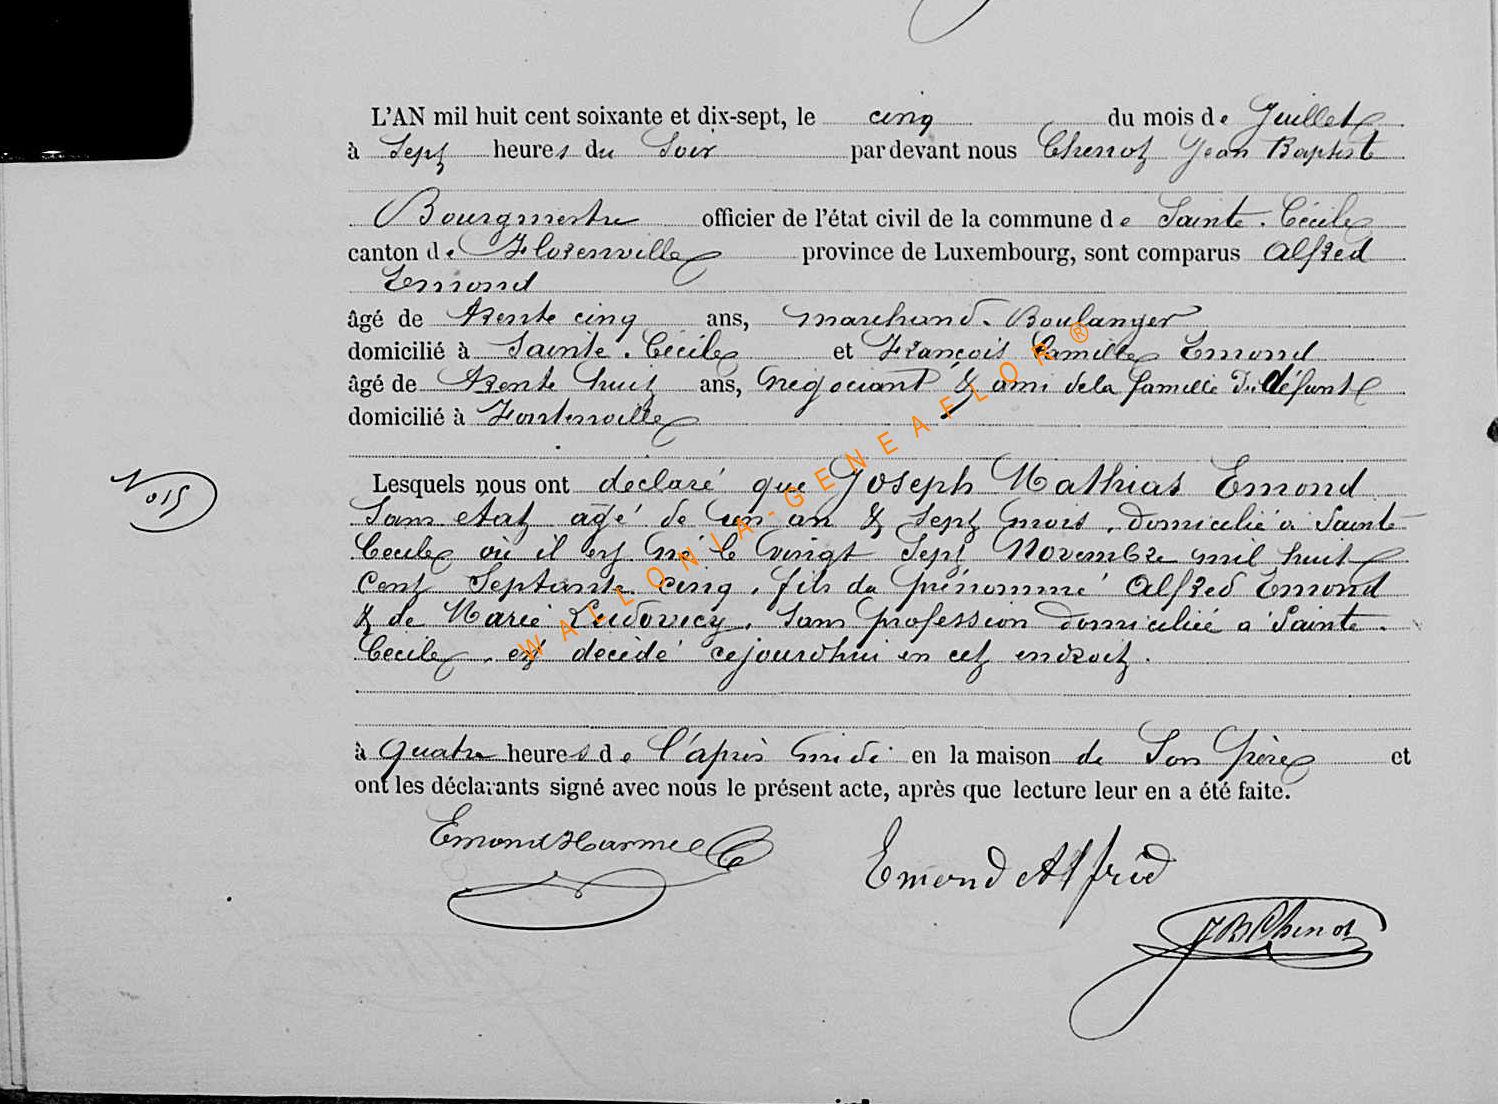 L'AN mil huit cent soixante et dix-sept, le cinq du mois de Juillet
à Sept heures du Soir par devant nous Chenot Jean Baptiste
Bourgmestre officier de l'état civil de la commune de Sainte. Cécile
canton de Florenville province de Luxembourg, sont comparus Alfred
Emond
âgé de trente cinq ans, marchand. Boulanger
domicilié à Sainte. Cécile et François Camille Emond
âgé de trente huit ans, négociant & ami de la famille du défunt
domicilié à
No 15
Lesquels nous ont déclaré que Joseph Mathias Emond
Sans etat agé de un an & sept mois, domicilié à Sainte
Cecile où il est né le vingt Sept Novembre mil huit
cent Septante cinq, fils du prénommé Alfred Emond
& de Marie Ludovicy, sans profession domiciliée à Sainte.
Cecile, est décédé cejourdhui en cet endroit.
à quatre heures de l'après midi en la maison de Son père et
ont les déclarants signé avec nous le présent acte, après que lecture leur en a été faite.
Emond Harmel
Emond Alfred
JB Chenot
WALLONIA-GENEAFLOR ®